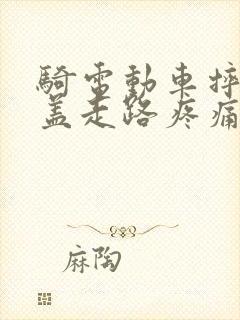 騎電動車摔
蓋走路疼痛
麻陶